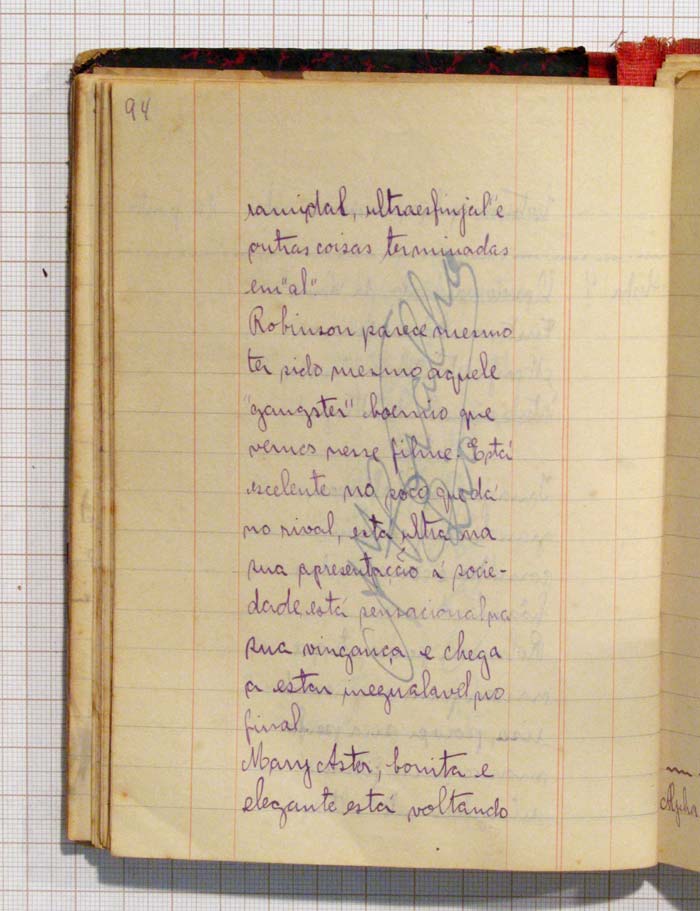 94
ramidal, ultraesfinjal" e
outras coisas terminadas
em "al"
Robinson parece mesmo
ter sido mesmo aquele
"gangster" boemio que
vemos nesse filme. Está
escelente no soco que dá
no rival, está ultra na
sua apresentação á socie-
dade, está sensacional na
sua vingança e chega
a estar inegualavel no
final.
Mary Astor, bonita e
elegante está voltando